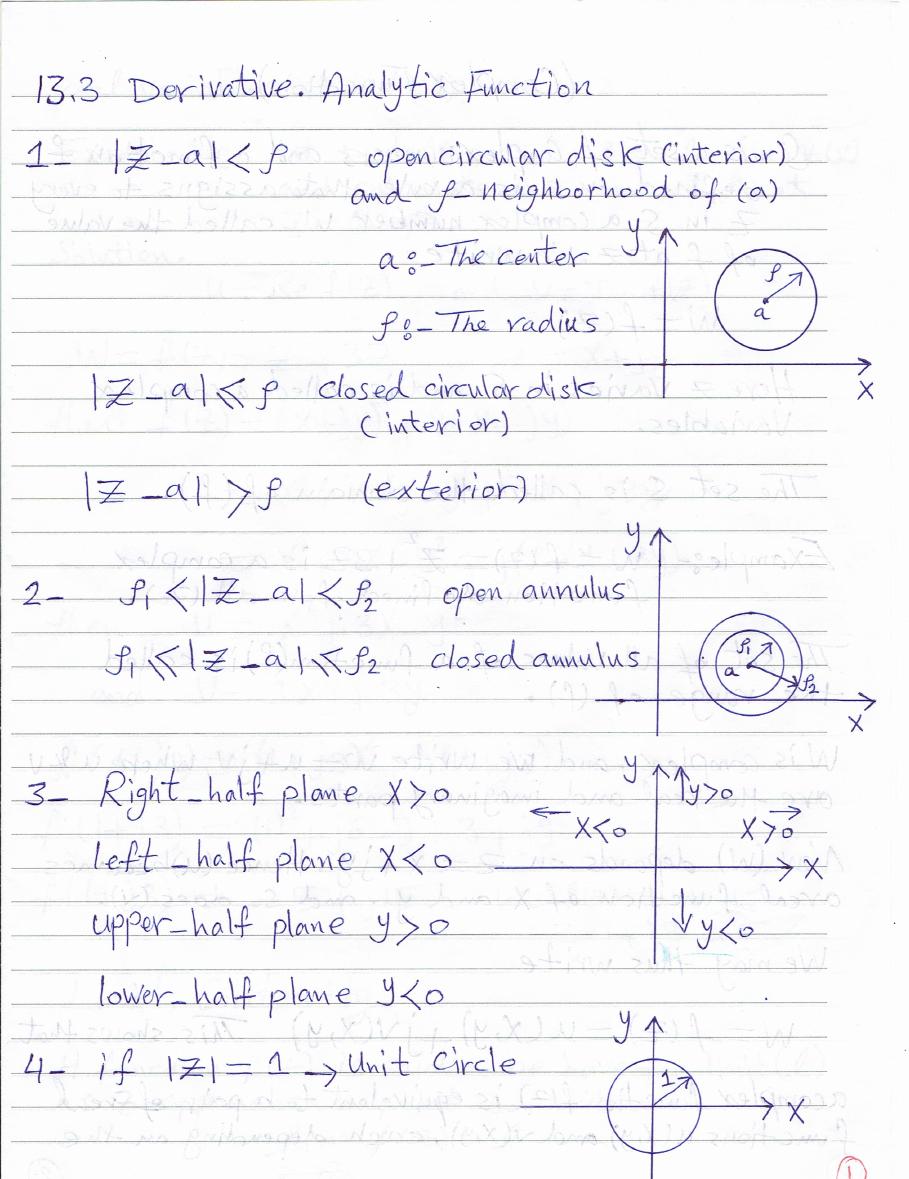 13.3 Derivative. Analytic Function
1- |Z-a| < ρ open circular disk (interior)
and ρ-neighborhood of (a)
a:- The center
ρ:- The radius
y
ρ
a
x
|Z-a| ≤ ρ closed circular disk
(interior)
|Z-a| > ρ (exterior)
y
2- ρ₁ < |Z-a| < ρ₂ open annulus
ρ₁ ≤ |Z-a| ≤ ρ₂ closed annulus
ρ₁
a
ρ₂
x
3- Right-half plane x>0
y
y>0
x<0
x>0
left-half plane x<0
x
upper-half plane y>0
y<0
lower-half plane y<0
y
4- if |Z| = 1 → Unit Circle
1
x
1